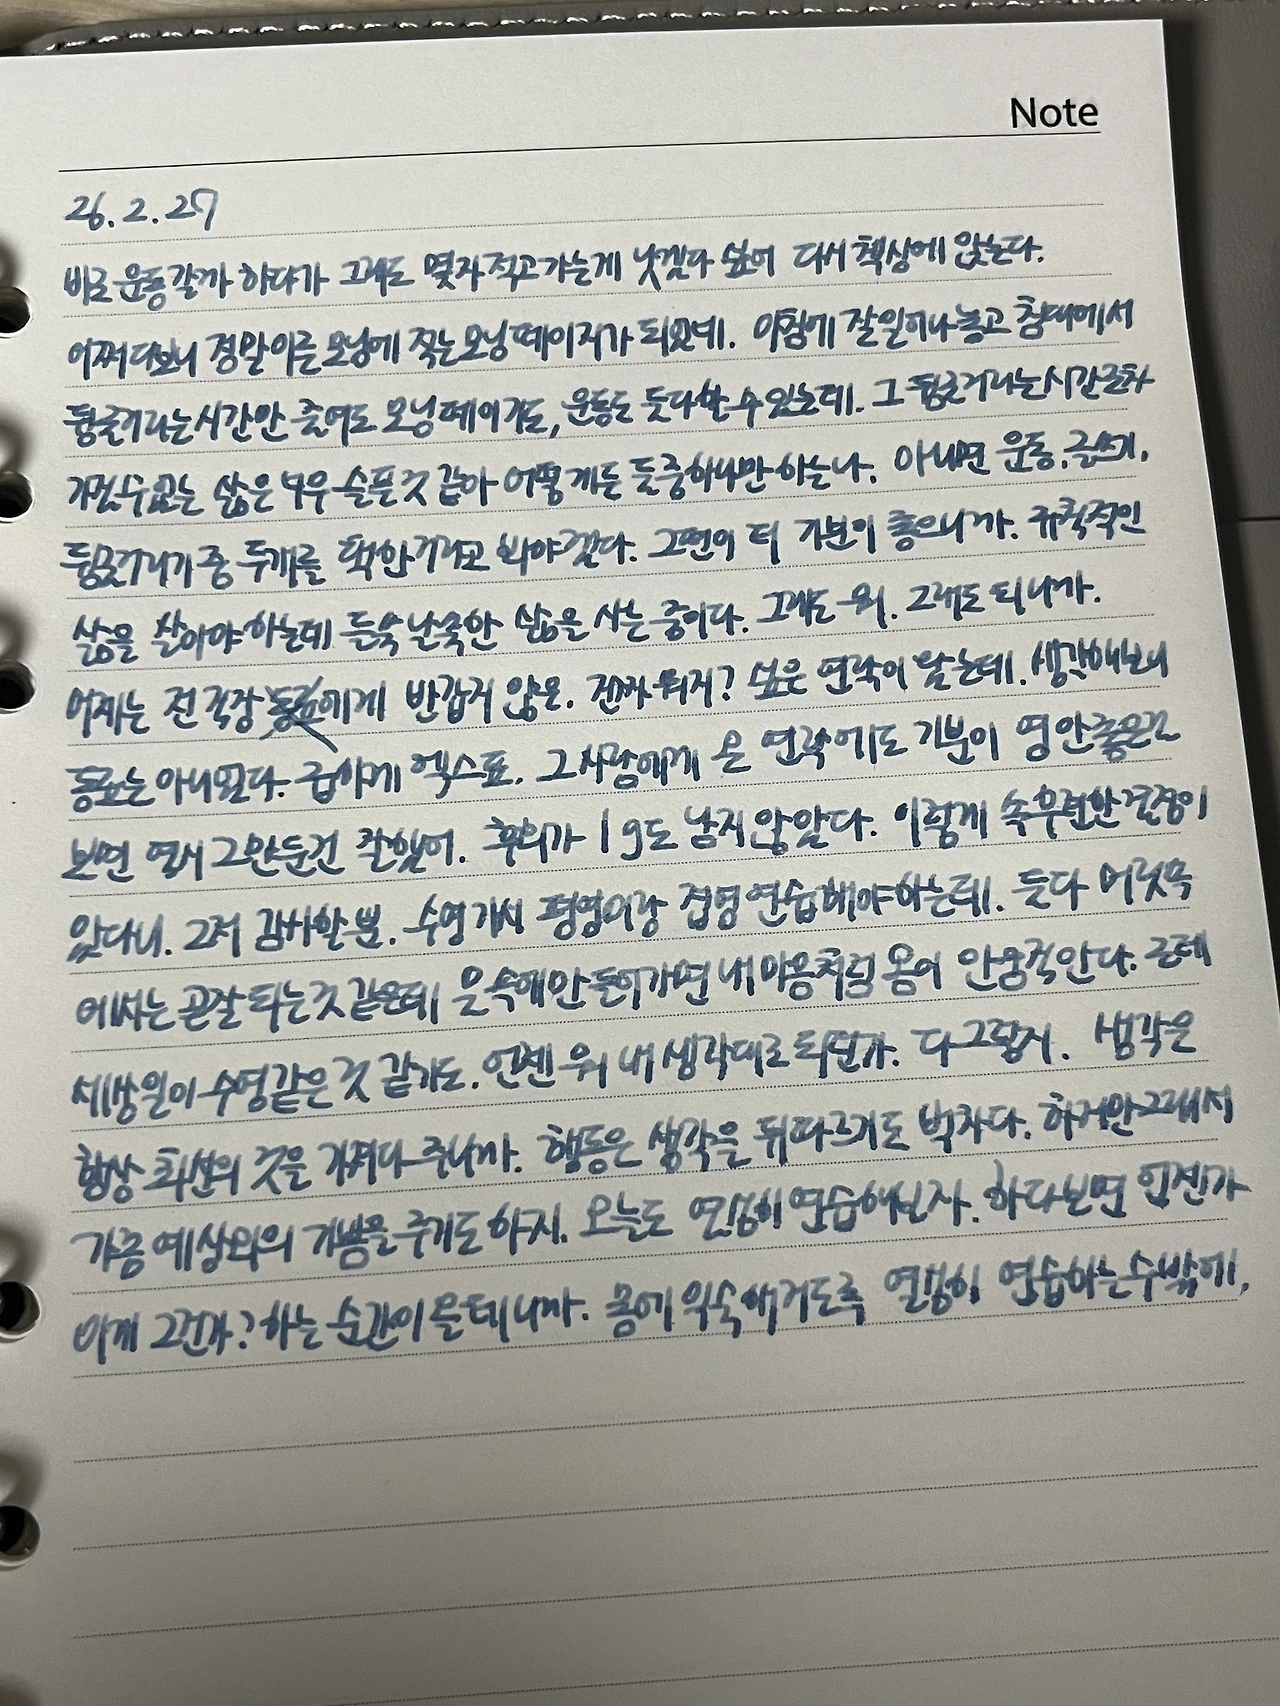 Note
26.2.27
바로 운동갈까 하다가 그래도 몇자 적고가는게 낫겠다 싶어 다시 책상에 앉는다.
어쩌다보니 정말 이른 모닝에 적는 모닝페이지가 되었네. 아침에 잘 일어나놓고 침대에서
뒹굴거리는시간만 줄여도 모닝페이지도, 운동도 둘다할 수 있는데. 그 뒹굴거리는시간조차
가질수없는 삶은 너무 슬픈것 같아 어떻게든 둘중하나만 하는나. 아니면 운동, 글쓰기,
뒹굴거리기 중 두개를 택한거라고 봐야겠다. 그편이 더 기분이 좋으니까. 규칙적인
삶을 살아야 하는데 들쑥날쑥한 삶을 사는 중이다. 그래도 뭐. 그래도 되니까.
어제는 전 직장 에게 반갑지 않은. 진짜 뭐지? 싶은 연락이 왔는데. 생각해보니
동료는 아니였다. 급하게 엑스표. 그사람에게 온 연락에도 기분이 영 안좋은걸
보면 역시 그만둔건 잘했어. 후회가 1g도 남지 않았다. 이렇게 속후련한 결정이
있다니. 그저 감사할 뿐. 수영가서 평영이랑 접영 연습해야하는데. 둘다 머릿속
에서는 곧잘 되는것 같은데 물속에만 들어가면 내 마음처럼 몸이 안움직인다. 근데
세상일이 수영같은 것 같기도. 언젠 뭐 내 생각대로 되던가. 다그렇지. 생각은
항상 최선의 것을 가져다 주니까. 행동은 생각을 뒤따르기도 벅차다. 하지만 그래서
가끔 예상외의 기쁨을 주기도 하지. 오늘도 열심히 연습해보자. 하다보면 언젠가
아게 그건가? 하는 순간이 올테니까. 몸에 익숙해지도록 열심히 연습하는수밖에.